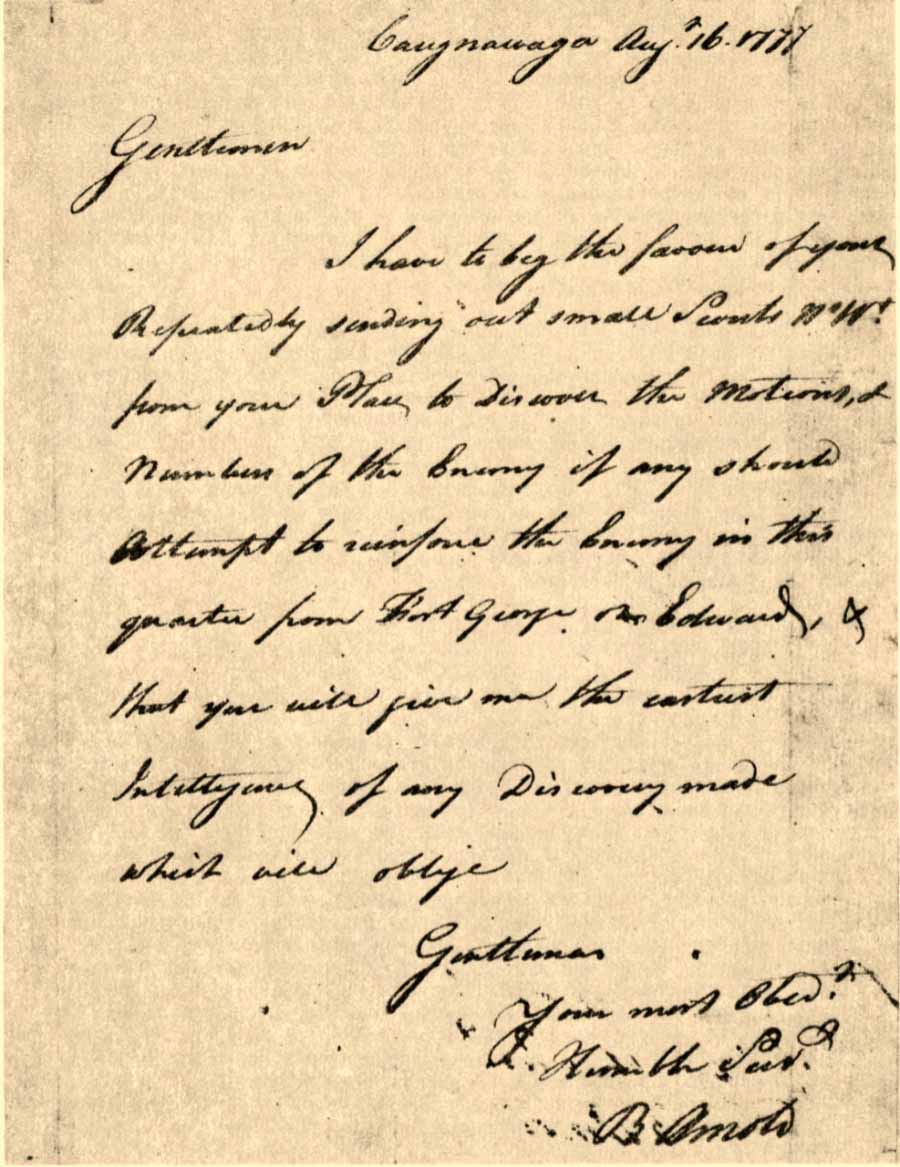 Caugnawaga Augt. 16. 1777
Gentlemen
I have to beg the favour of your
Repeatedly sending out small Scouts
from your Place, to Discover the Motions, &
Numbers of the Enemy if any should
Attempt to reinforce the Enemy in this
quarter from Fort George or Edward, &
that you will give me the earliest
Intelligence of any Discovery made
which will oblige
Gentlemen
Your most Obedt.
Humble Servt.
B Arnold